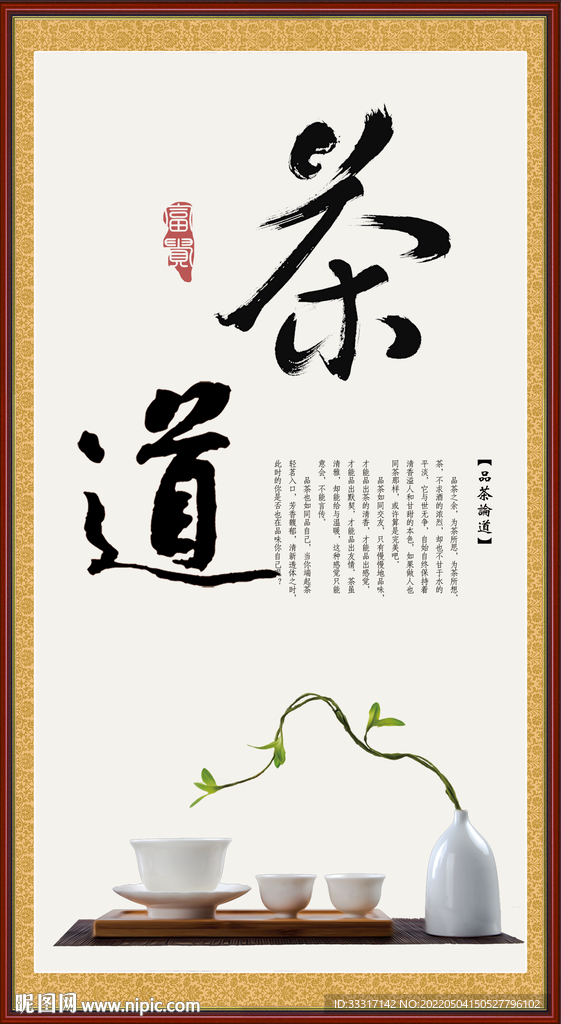 茶道
富贵
【品茶論道】
品茶之余，为茶所思，为茶所想，
茶，不求酒的浓烈，却也不甘于水的
平淡，它与世无争，自始自终保持着
清香溢人和甘甜的本色，如果做人也
同茶那样，或许算是完美吧。
品茶如同交友，只有慢慢地品味，
才能品出茶的清香，才能品出感觉，
才能品出默契，才能品出友情，茶虽
清雅，却能给与温暖，这种感觉只能
意会，不能言传。
品茶也如同品自己，当你端起茶
轻茗入口，芳香馥郁，清新透体之时，
此时的你是否也在品味你自己呢？
昵图网 www.nipic.com
ID:33317142 NO:20220504150527796102